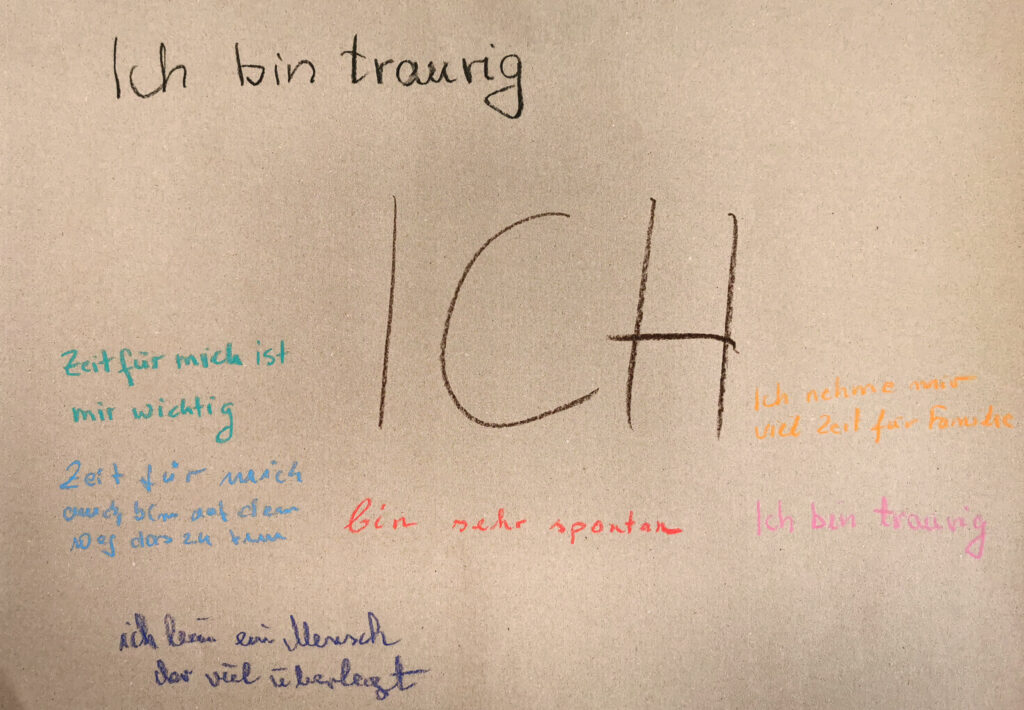 Ich bin traurig
ICH
Zeit für mich ist
mir wichtig
Ich nehme mir
viel Zeit für Familie
Zeit für mich
auch bin auf dem
Weg das zu tun
bin sehr spontan
Ich bin traurig
ich bin ein Mensch
der viel überlegt